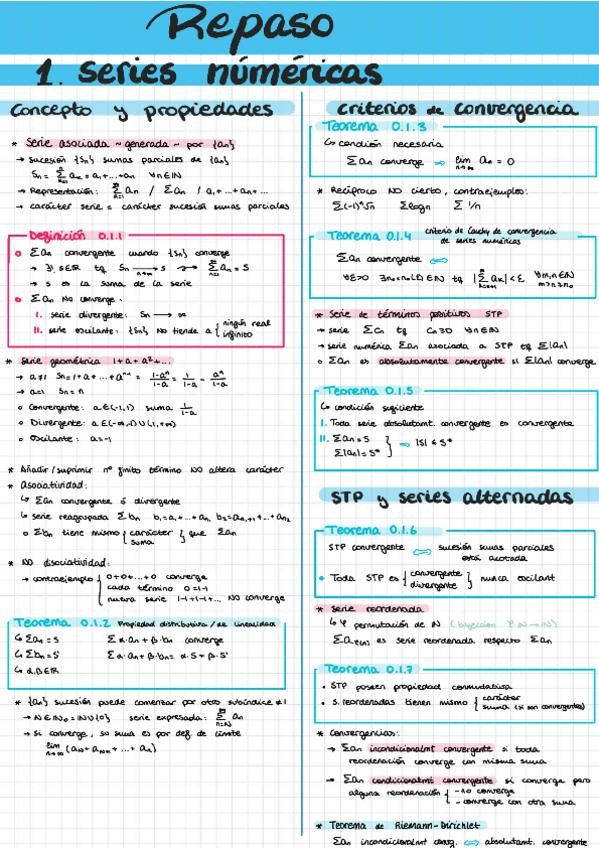 Repaso
1. Series númericas
Concepto y propiedades
* Serie asociada ~ generada ~ por {an}
→ sucesión {Sn} sumas parciales de {an}
Sn = Σ ak = a1+...+an ∀n∈ℕ
→ Representación: Σ an / Σan / a1+...+an+...
→ carácter serie = carácter sucesión sumas parciales
Definición 0.1.1
o Σan convergente cuando {Sn} converge
→ ∃! S∈ℝ tq Sn → S Σ an = S
→ S es la suma de la serie
o Σan NO converge:
I. serie divergente: Sn → ∞
II. serie oscilante: {Sn} NO tiende a { ningún real
infinito
* Serie geométrica 1+a+a²+...
→ a≠1 Sn=1+a+...+aⁿ⁻¹ = 1-aⁿ/1-a = 1/1-a - aⁿ/1-a
→ a=1 Sn=n
o Convergente: a∈(-1,1) suma 1/1-a
o Divergente: a∈(-∞,-1)∪(1,+∞)
o Oscilante: a=-1
* Añadir/suprimir nº finito término NO altera carácter
* Asociatividad:
↳ Σan convergente ó divergente
↳ serie reagrupada Σbn b1=a1+...+an1 b2=an1+1+...+an2
o Σbn tiene mismo { carácter } que Σan
suma
* NO disociatividad:
→ contraejemplo { 0+0+...+0 converge
cada término 0=1-1
nueva serie 1-1+1-1+... NO converge
Teorema 0.1.2 Propiedad distributiva / de linealidad
↳ Σan = S Σ α·an + β·bn converge
↳ Σbn = S' Σ α·an + β·bn = α·S + β·S'
↳ α,β∈ℝ
* {an} sucesión puede comenzar por otro subíndice ≠1
→ N∈ℕ0=ℕ∪{0} serie expresada: Σ an
→ si converge, su suma es por def. de límite
lim (aN+aN+1+...+an)
Criterios de convergencia
Teorema 0.1.3
↳ condición necesaria
Σan converge ⇒ lim an = 0
* Recíproco NO cierto, contraejemplos:
Σ(-1)ⁿ√n Σlogn Σ 1/n
Teorema 0.1.4 criterio de Cauchy de convergencia
de series numéricas
Σan convergente ⇔
∀ε>0 ∃n0=n0(ε)∈ℕ tq |Σ ak|<ε ∀m,n∈ℕ
m>n≥n0
* Serie de términos positivos STP
→ serie Σcn tq cn≥0 ∀n∈ℕ
→ serie numérica Σan asociada a STP tq Σ|an|
o Σan es absolutamente convergente si Σ|an| converge
Teorema 0.1.5
↳ condición suficiente
I. Toda serie absolutamt. convergente es convergente
II. Σan = S
Σ|an| = S* } ⇒ |S| ≤ S*
STP y series alternadas
Teorema 0.1.6
STP convergente ⇔ sucesión sumas parciales
está acotada
• Toda STP es { convergente
divergente } nunca oscilant
* Serie reordenada
↳ φ permutación de ℕ (biyección φ:ℕ→ℕ)
Σaφ(n) es serie reordenada respecto Σan
Teorema 0.1.7
• STP poseen propiedad conmutativa
• s. reordenadas tienen mismo { carácter
suma (si son convergentes)
* Convergencias:
→ Σan incondicionalmt convergente si toda
reordenación converge con misma suma
→ Σan condicionalmt convergente si converge pero
alguna reordenación { -no converge
-converge con otra suma
* Teorema de Riemann-Dirichlet
Σan incondicionalmt conv. ⇔ absolutamt. convergente